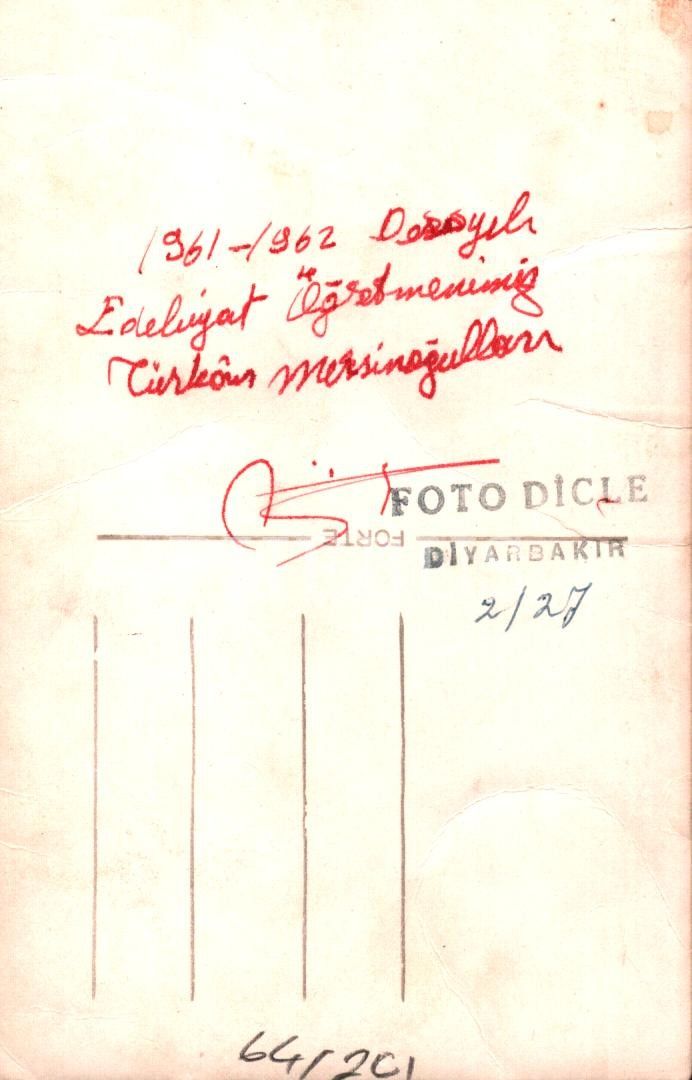 1961-1962 Dersyılı
Edebiyat Öğretmenimiz
Türkân Mersinoğulları
FOTO DİCLE
FORTE
DİYARBAKIR
2/27
64/201